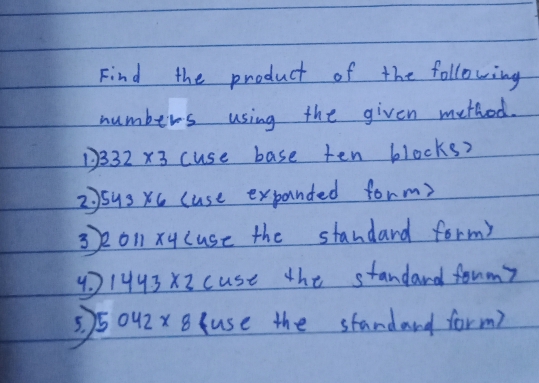 Find the product of the following
numbers using the given method.
1.)332 x3 (use base ten blocks)
2.)543 x6 (use expanded form)
3)2 011 x4(use the standard form)
4.)1443 x2 (use the standard form)
5.)5 042 x 8 (use the standard form)